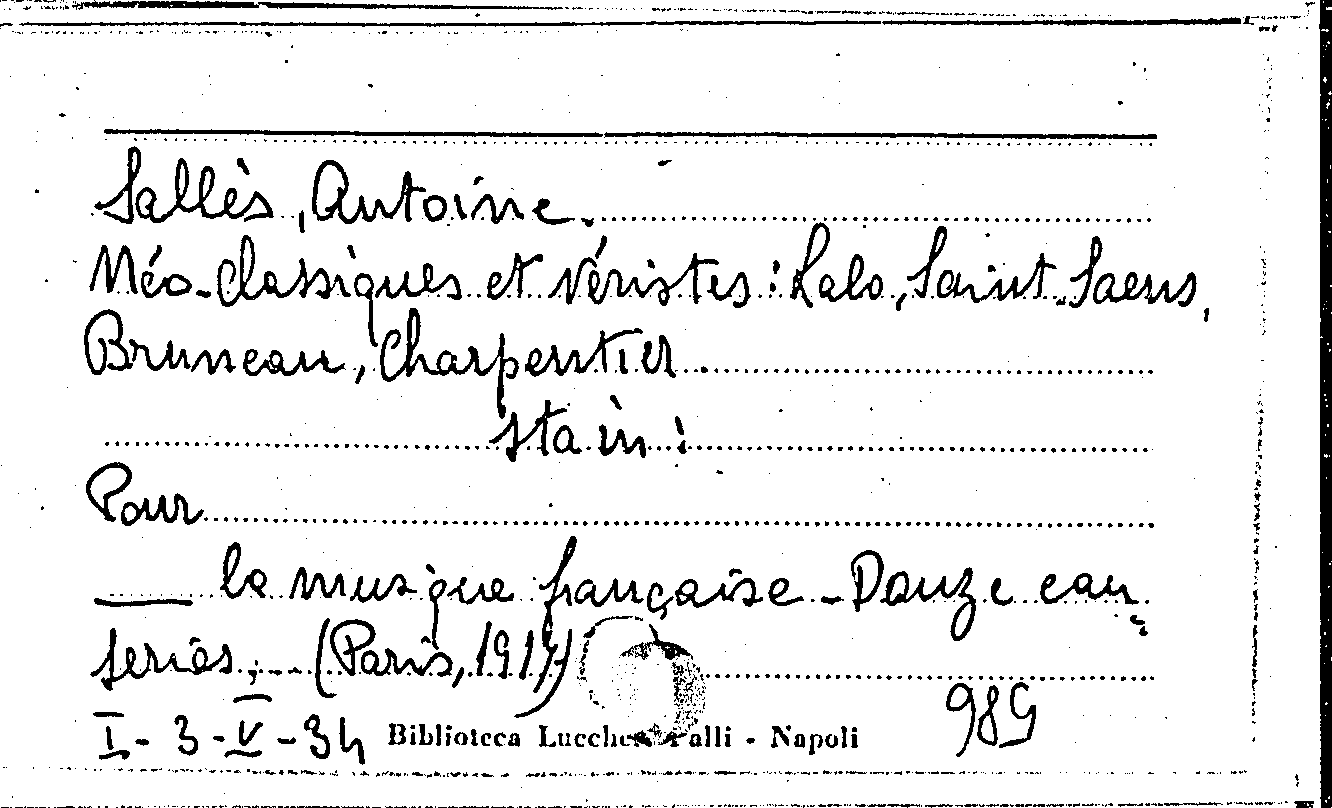 Sallès, Antoine.
Néo-classiques et véristes: Lalo, Saint-Saens,
Bruneau, Charpentier.
sta in:
Pour
___ la musique française - Douze cau=
series, - (Paris, 1917)
I - 3 - V - 34 Biblioteca Lucchesi Palli - Napoli 989